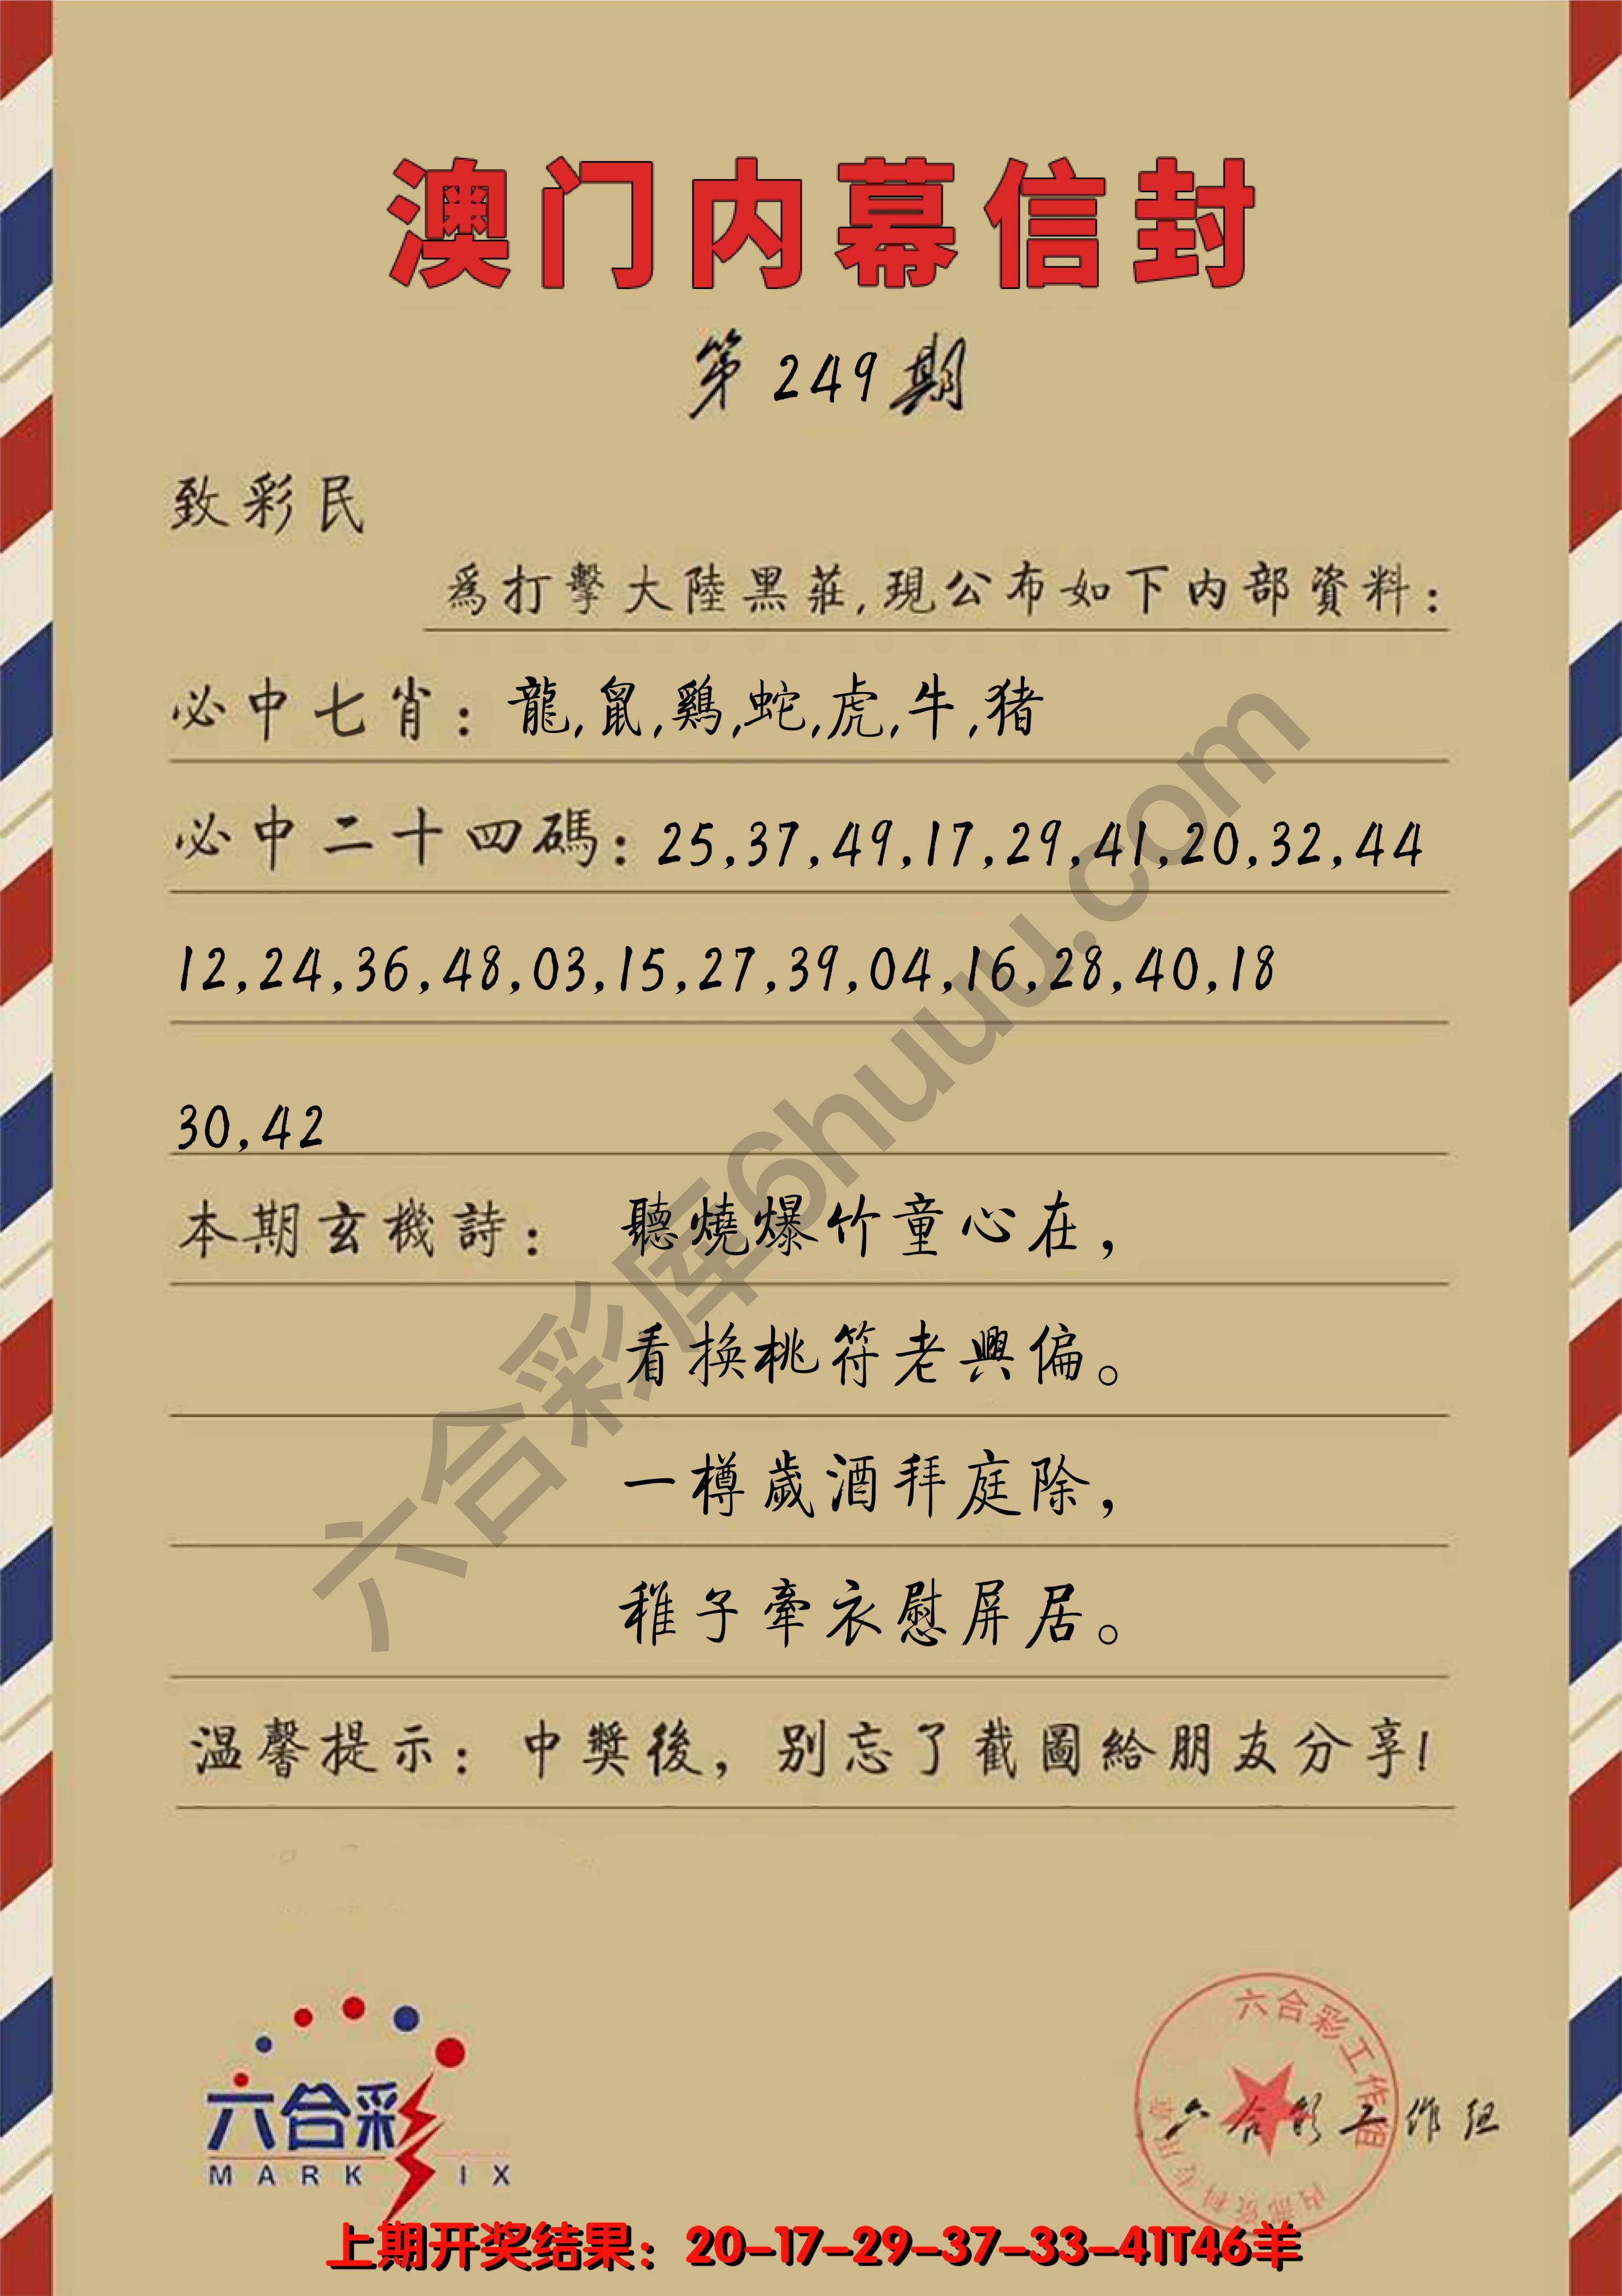 澳门内幕信封
第249期
致彩民
為打擊大陸黑莊,現公布如下内部資料:
必中七肖: 龍,鼠,鷄,蛇,虎,牛,猪
必中二十四碼: 25,37,49,17,29,41,20,32,44
12,24,36,48,03,15,27,39,04,16,28,40,18
30,42
本期玄機詩: 聽燒爆竹童心在,
看换桃符老興偏。
一樽歲酒拜庭除,
稚子牽衣慰屏居。
温馨提示: 中獎後, 别忘了截圖給朋友分享!
六合彩库6huuu.com
六合彩
MARK IX
六合彩工作组
内部资料专用章
六合彩工作组
上期开奖结果: 20-17-29-37-33-41T46羊